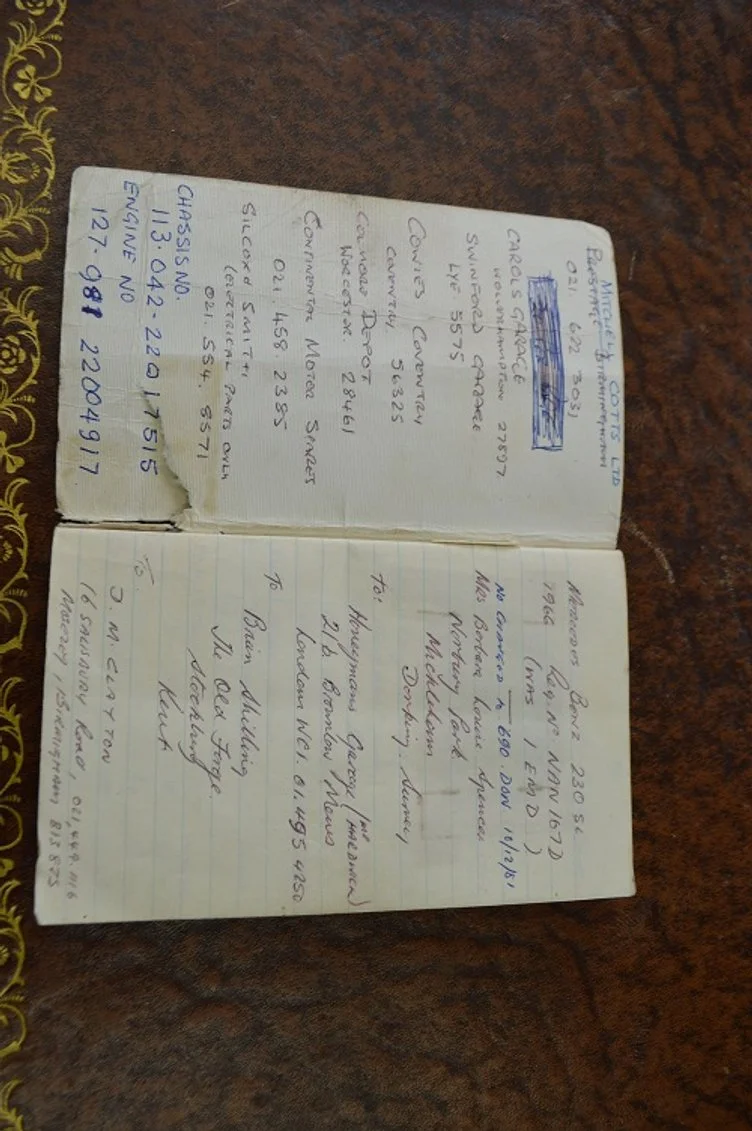 MITCHELL COTTS LTD
BIRMINGHAM
021. 622 3031
CAROLS GARAGE
WOLVERHAMPTON 27897
SWINFORD GARAGE
LYE 5575
COWIES COVENTRY
COVENTRY 56325
COLMORE DEPOT
WORCESTER 28461
CONTINENTAL MOTOR SPARES
021. 458. 2385
SILCOCK SMITH
(ELECTRICAL PARTS ONLY
021. 554. 8571
CHASSIS NO.
113.042-220 17515
ENGINE NO
127.981 22004917
Mercedes Benz 230 SL
1966 Reg. No. NAN 167D
(WAS 1 EMD)
No CHANGED to 690 DON 16/12/81
Mrs Barbara Louise Spencer
Norbury Park
Mickleham
Dorking. Surrey
to:
Honeymans Garage (Mr HARDIMAN)
21b Brownlow Mews
London WC1. 01.495 4250
To
Brian Shilling
The Old Forge
Stockbury
Kent
To.
J. M. CLAYTON
16 SALISBURY ROAD, 021.449.1116
MOSELEY, BIRMINGHAM B13 8JS